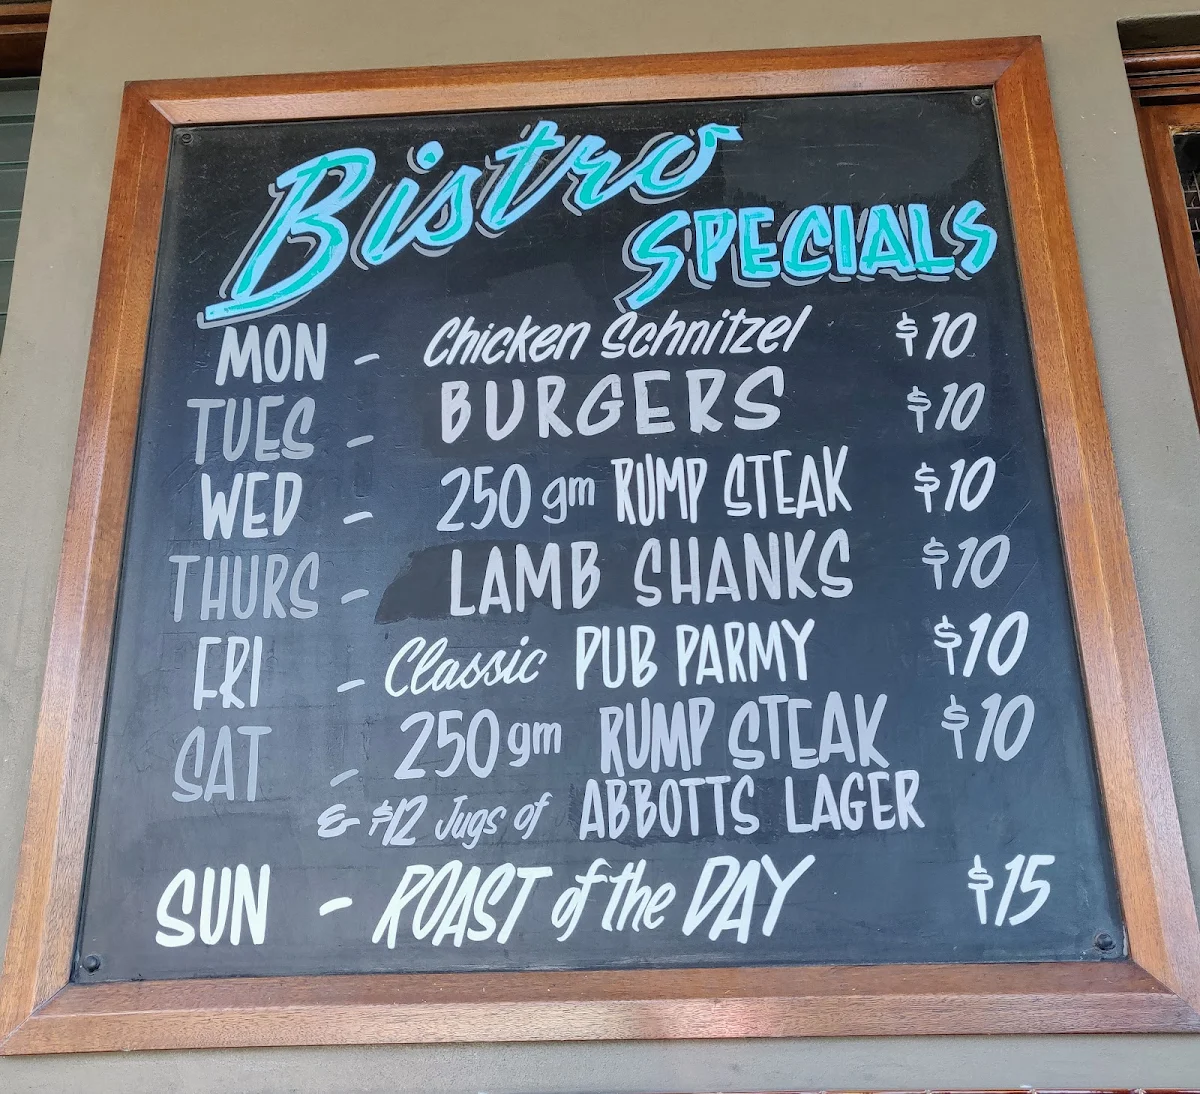 Bistro
SPECIALS
MON - Chicken Schnitzel $10
TUES - BURGERS $10
WED - 250 gm RUMP STEAK $10
THURS - LAMB SHANKS $10
FRI - Classic PUB PARMY $10
SAT - 250 gm RUMP STEAK $10
& $12 Jugs of ABBOTTS LAGER
SUN - ROAST of the DAY $15